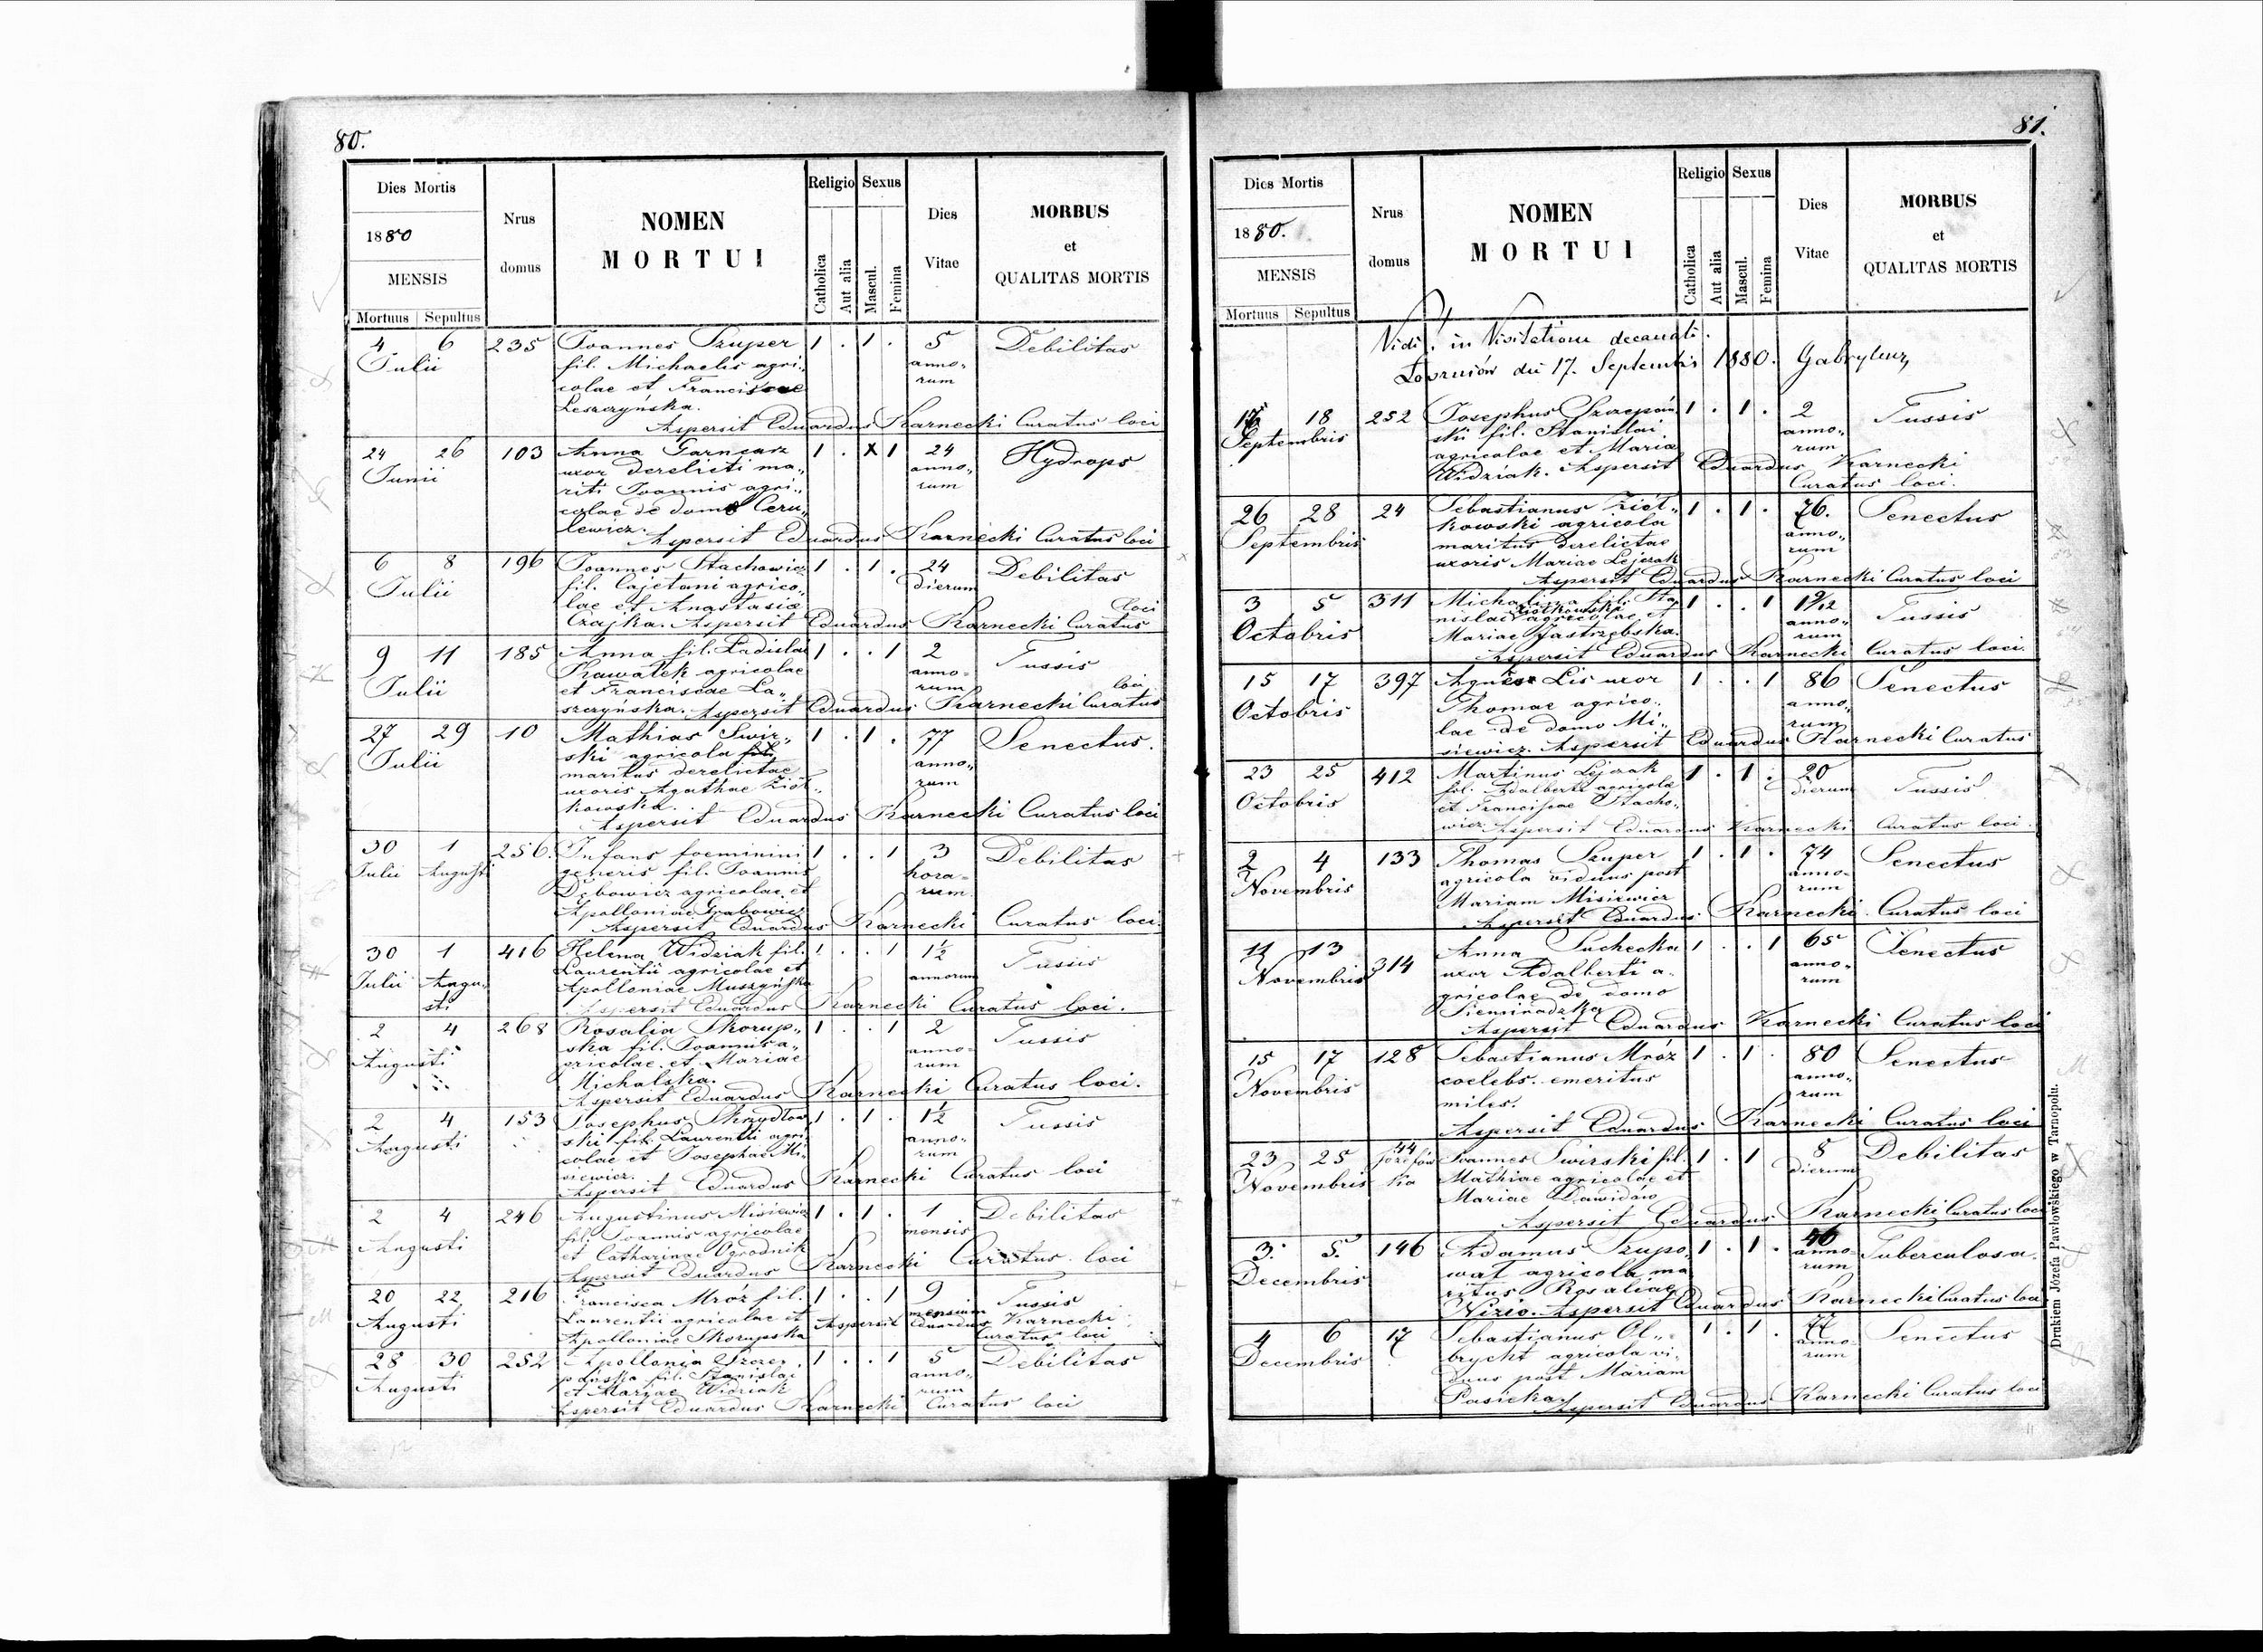 80.
Dies Mortis
1880
MENSIS
Mortuus Sepultus
Nrus
domus
NOMEN
MORTUI
Religio
Catholica
Aut alia
Sexus
Mascul.
Femina
Dies
Vitae
MORBUS
et
QUALITAS MORTIS
4 6 235 Joannes Szuper 1 . 1 . 5 Debilitas
Julii fil. Michaelis agri- anno-
colae et Franciscae rum
Leszczyńska.
Aspersit Eduardus Karnecki Curatus loci
24 26 103 Anna Garncarz 1 . X 1 24 Hydrops
Junii uxor derelicti ma- anno-
riti Joannis agri- rum
colae de domo Ceru-
lewicz.
Aspersit Eduardus Karnecki Curatus loci
6 8 196 Joannes Stachowicz 1 . 1 . 24 Debilitas
Julii fil. Cajetani agrico- dierum
lae et Anastasiae loci
Czajka. Aspersit Eduardus Karnecki Curatus
9 11 185 Anna fil. Ladislai 1 . . 1 2 Tussis
Julii Kawałek agricolae anno-
et Franciscae La- rum loci
szczyńska. Aspersit Eduardus Karnecki Curatus
27 29 10 Mathias Swir- 1 . 1 . 77 Senectus.
Julii ski agricola fil. anno-
maritus derelictae rum
uxoris Agathae Ziół-
kowska.
Aspersit Eduardus Karnecki Curatus loci
30 1 256. Infans foeminini 1 . . 1 3 Debilitas
Julii Augusti generis fil. Joannis hora-
Dębowicz agricolae et rum.
Apolloniae Grabowicz
Aspersit Eduardus Karnecki Curatus loci.
30 1 416 Helena Widziak fil. 1 . . 1 1½ Tussis
Julii Augu- Laurentii agricolae et annorum
sti Apolloniae Muszyńska
Aspersit Eduardus Karnecki Curatus loci.
2 4 268 Rosalia Skorup- 1 . . 1 2 Tussis
Augusti ska fil. Joannis a- anno-
gricolae et Mariae rum
Michalska.
Aspersit Eduardus Karnecki Curatus loci.
2 4 153 Josephus Skrzydłow 1 . 1 . 1½ Tussis
Augusti ski fil. Laurentii agri- anno-
colae et Josephae Mi- rum
siewicz.
Aspersit Eduardus Karnecki Curatus loci
2 4 246 Augustinus Misiewicz 1 . 1 . 1 Debilitas
Augusti fil. Joannis agricolae mensis
et Catharinae Ogrodnik
Aspersit Eduardus Karnecki Curatus loci
20 22 216 Francisca Mróz fil. 1 . . 1 9 Tussis
Augusti Laurentii agricolae et Aspersit mensium Eduardus Karnecki
Apolloniae Skorupska Curatus loci
28 30 252 Apollonia Szcze- 1 . . 1 5 Debilitas
Augusti pańska fil. Stanislai anno-
et Mariae Widziak rum
Aspersit Eduardus Karnecki Curatus loci
81.
Dies Mortis
1880.
MENSIS
Mortuus Sepultus
Nrus
domus
NOMEN
MORTUI
Religio
Catholica
Aut alia
Sexus
Mascul.
Femina
Dies
Vitae
MORBUS
et
QUALITAS MORTIS
Vidi in Visitatione decanali.
die 17. Septembris 1880.
18 252 Josephus Szczepań- 1 . 1 . 2 Tussis
Septembris ski fil. Stanislai anno-
agricolae et Mariae rum
Widziak. Aspersit Eduardus Karnecki
Curatus loci.
26 28 24 Sebastianus Ziół- 1 . 1 . 76. Senectus
Septembris kowski agricola anno-
maritus derelictae rum
uxoris Mariae Lejczak
Aspersit Eduardus Karnecki Curatus loci
3 5 311 Michalina fil. Sta- 1 . . 1 1 9/12 Tussis
Octobris nislai Ziółkowski agricolae et anno-
Mariae Jastrzębska. rum
Aspersit Eduardus Karnecki Curatus loci.
15 17 397 Agnes Lis uxor 1 . . 1 86 Senectus
Octobris Thomae agrico- anno-
lae de domo Mi- rum
siewicz. Aspersit Eduardus Karnecki Curatus
23 25 412 Martinus Lejczak 1 . 1 . 20 Tussis
Octobris fil. Adalberti agricolae dierum
et Franciscae Stacho-
wicz Aspersit Eduardus Karnecki Curatus loci.
2 4 133 Thomas Szuper 1 . 1 . 74 Senectus
Novembris agricola viduus post anno-
Mariam Misiewicz rum
Aspersit Eduardus Karnecki Curatus loci
11 13 314 Anna Suchecka 1 . . 1 65 Senectus
Novembris uxor Adalberti a- anno-
gricolae de domo rum
Sieminadzka
Aspersit Eduardus Karnecki Curatus loci
15 17 128 Sebastianus Mróz 1 . 1 . 80 Senectus
Novembris coelebs. emeritus anno-
miles. rum
Aspersit Eduardus Karnecki Curatus loci
23 25 44 Joannes Swirski fil. 1 . 1 8 Debilitas
Novembris Józefów ka Mathiae agricolae et dierum
Mariae Dawidów
Aspersit Eduardus Karnecki Curatus loci
3. 5. 146 Adamus Szupo- 1 . 1 . 46 Tuberculosa.
Decembris wał agricola ma- anno-
ritus Rosaliae rum
Nizio. Aspersit Eduardus Karnecki Curatus loci
4 6 17 Sebastianus Ol- 1 . 1 . 77 Senectus
Decembris brycht agricola vi- anno-
duus post Mariam rum
Pasieka Aspersit Eduardus Karnecki Curatus loci
Drukiem Józefa Pawłowskiego w Tarnopolu.